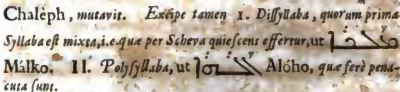 Chaleph, mutavit. Excipe tamen 1. Dissyllaba, quorum prima
Syllaba est mixta, i.e. quæ per Scheva quiescens effertur, ut
Málko. II. Polysyllaba, ut Alóho, quæ ferè penacuta sunt.